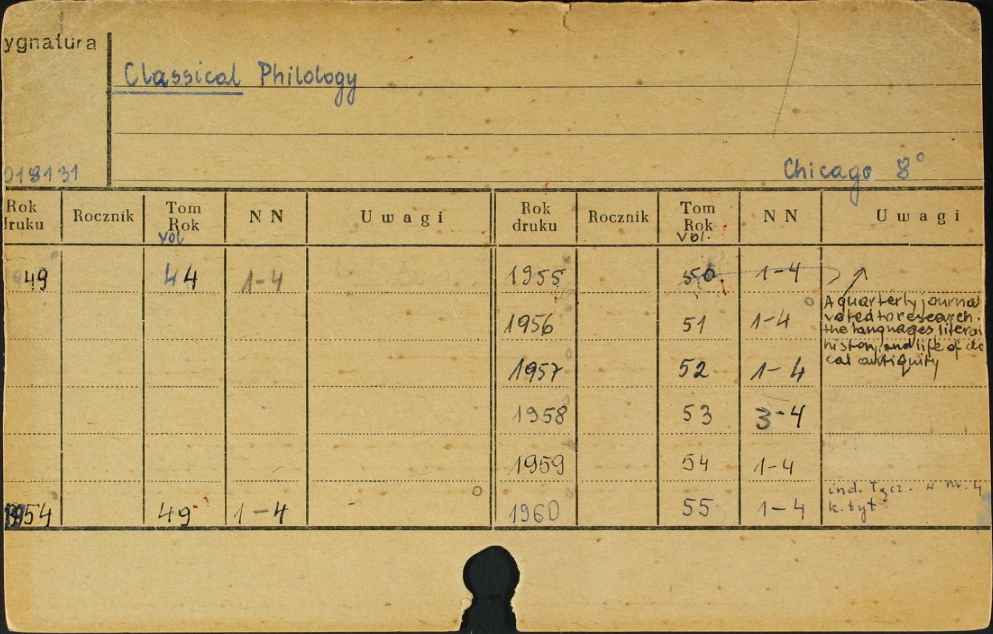 ygnatura
Classical Philology
018131
Chicago 8°
Rok druku Rocznik Tom Rok vol NN Uwagi Rok druku Rocznik Tom Rok vol. NN Uwagi
49 44 1-4 1955 50 1-4
A quarterly journal
voted to research
the languages litera
history, and life of
cal antiquity
1956 51 1-4
1957 52 1-4
1958 53 3-4
1959 54 1-4
54 49 1-4 1960 55 1-4
ind. nr. 4
k. tyt